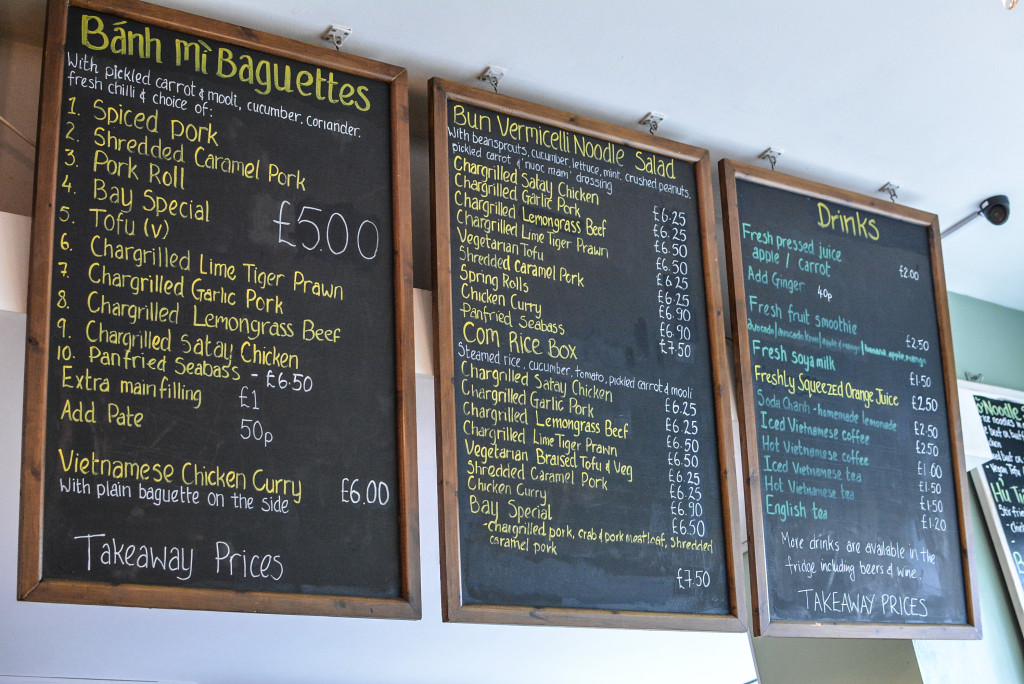 Bánh mì Baguettes
With pickled carrot & mooli, cucumber, coriander,
fresh chilli & choice of:
1. Spiced pork
2. Shredded Caramel Pork
3. Pork Roll
4. Bay Special
5. Tofu (v)
£5.00
6. Chargrilled Lime Tiger Prawn
7. Chargrilled Garlic Pork
8. Chargrilled Lemongrass Beef
9. Chargrilled Satay Chicken
10. Panfried Seabass - £6.50
Extra main filling £1
Add Pate 50p
Vietnamese Chicken Curry £6.00
With plain baguette on the side
Takeaway Prices
Bun Vermicelli Noodle Salad
With beansprouts, cucumber, lettuce, mint, crushed peanuts,
pickled carrot & 'nuoc mam' dressing
Chargrilled Satay Chicken £6.25
Chargrilled Garlic Pork £6.25
Chargrilled Lemongrass Beef £6.50
Chargrilled Lime Tiger Prawn £6.50
Vegetarian Tofu £6.25
Shredded Caramel Pork £6.25
Spring Rolls £6.90
Chicken Curry £6.90
Panfried Seabass £7.50
Com Rice Box
Steamed rice, cucumber, tomato, pickled carrot & mooli
Chargrilled Satay Chicken £6.25
Chargrilled Garlic Pork £6.25
Chargrilled Lemongrass Beef £6.50
Chargrilled Lime Tiger Prawn £6.50
Vegetarian Braised Tofu & Veg £6.25
Shredded Caramel Pork £6.25
Chicken Curry £6.90
Bay Special £6.50
-chargrilled pork, crab & pork meatloaf, shredded
caramel pork
£7.50
Drinks
Fresh pressed juice
apple / carrot £2.00
Add Ginger 40p
Fresh fruit smoothie £2.50
banana, apple, mango
Fresh soya milk £1.50
Freshly Squeezed Orange Juice £2.50
Soda Chanh - homemade lemonade £2.50
Iced Vietnamese coffee £2.50
Hot Vietnamese coffee £1.60
Iced Vietnamese tea £1.50
Hot Vietnamese tea £1.50
English tea £1.20
More drinks are available in the
fridge including beers & wine.
TAKEAWAY PRICES